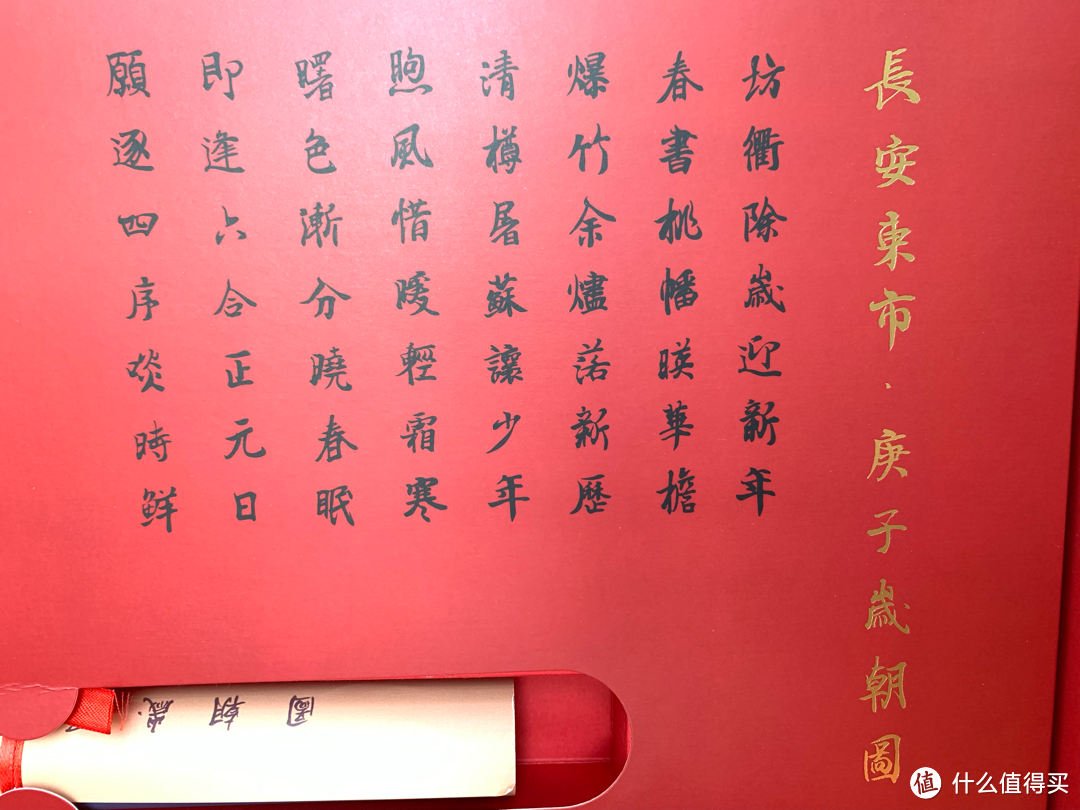 長安東市·庚子歲朝圖
坊衢除歲迎新年
春書桃幡暎華檐
爆竹余燼落新歷
清樽屠蘇讓少年
煦風惜暖輕霜寒
曙色漸分曉春眠
即逢六合正元日
願逐四序焱時鮮
歲朝圖
值 什么值得买